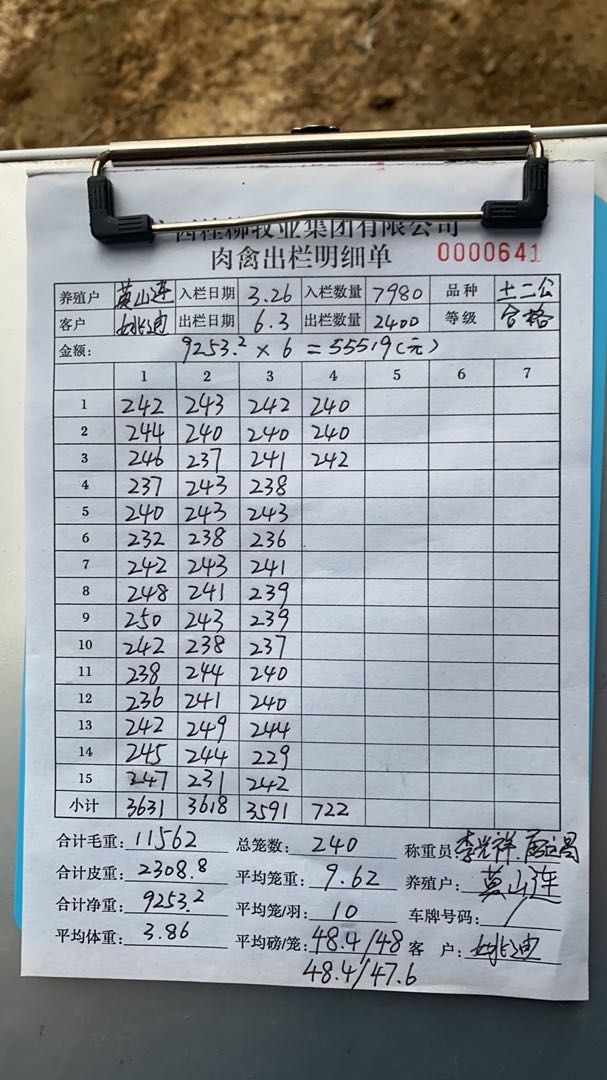 西桂柳牧业集团有限公司
肉禽出栏明细单 0000641
养殖户 莫山连 入栏日期 3.26 入栏数量 7980 品种 土二公
客户 姚迪 出栏日期 6.3 出栏数量 2400 等级 合格
金额: 9253.2 × 6 = 55519(元)
1 2 3 4 5 6 7
1 242 243 242 240
2 244 240 240 240
3 246 237 241 242
4 237 243 238
5 240 243 243
6 232 238 236
7 242 243 241
8 248 241 239
9 250 243 239
10 242 238 237
11 238 244 240
12 236 241 240
13 242 249 244
14 245 244 229
15 247 231 242
小计 3631 3618 3591 722
合计毛重: 11562 总笼数: 240 称重员: 李光祥.
合计皮重: 2308.8 平均笼重: 9.62 养殖户: 莫山连
合计净重: 9253.2 平均笼/羽: 10 车牌号码: /
平均体重: 3.86 平均磅/笼: 48.4/48 客 户: 姚迪
48.4/47.6